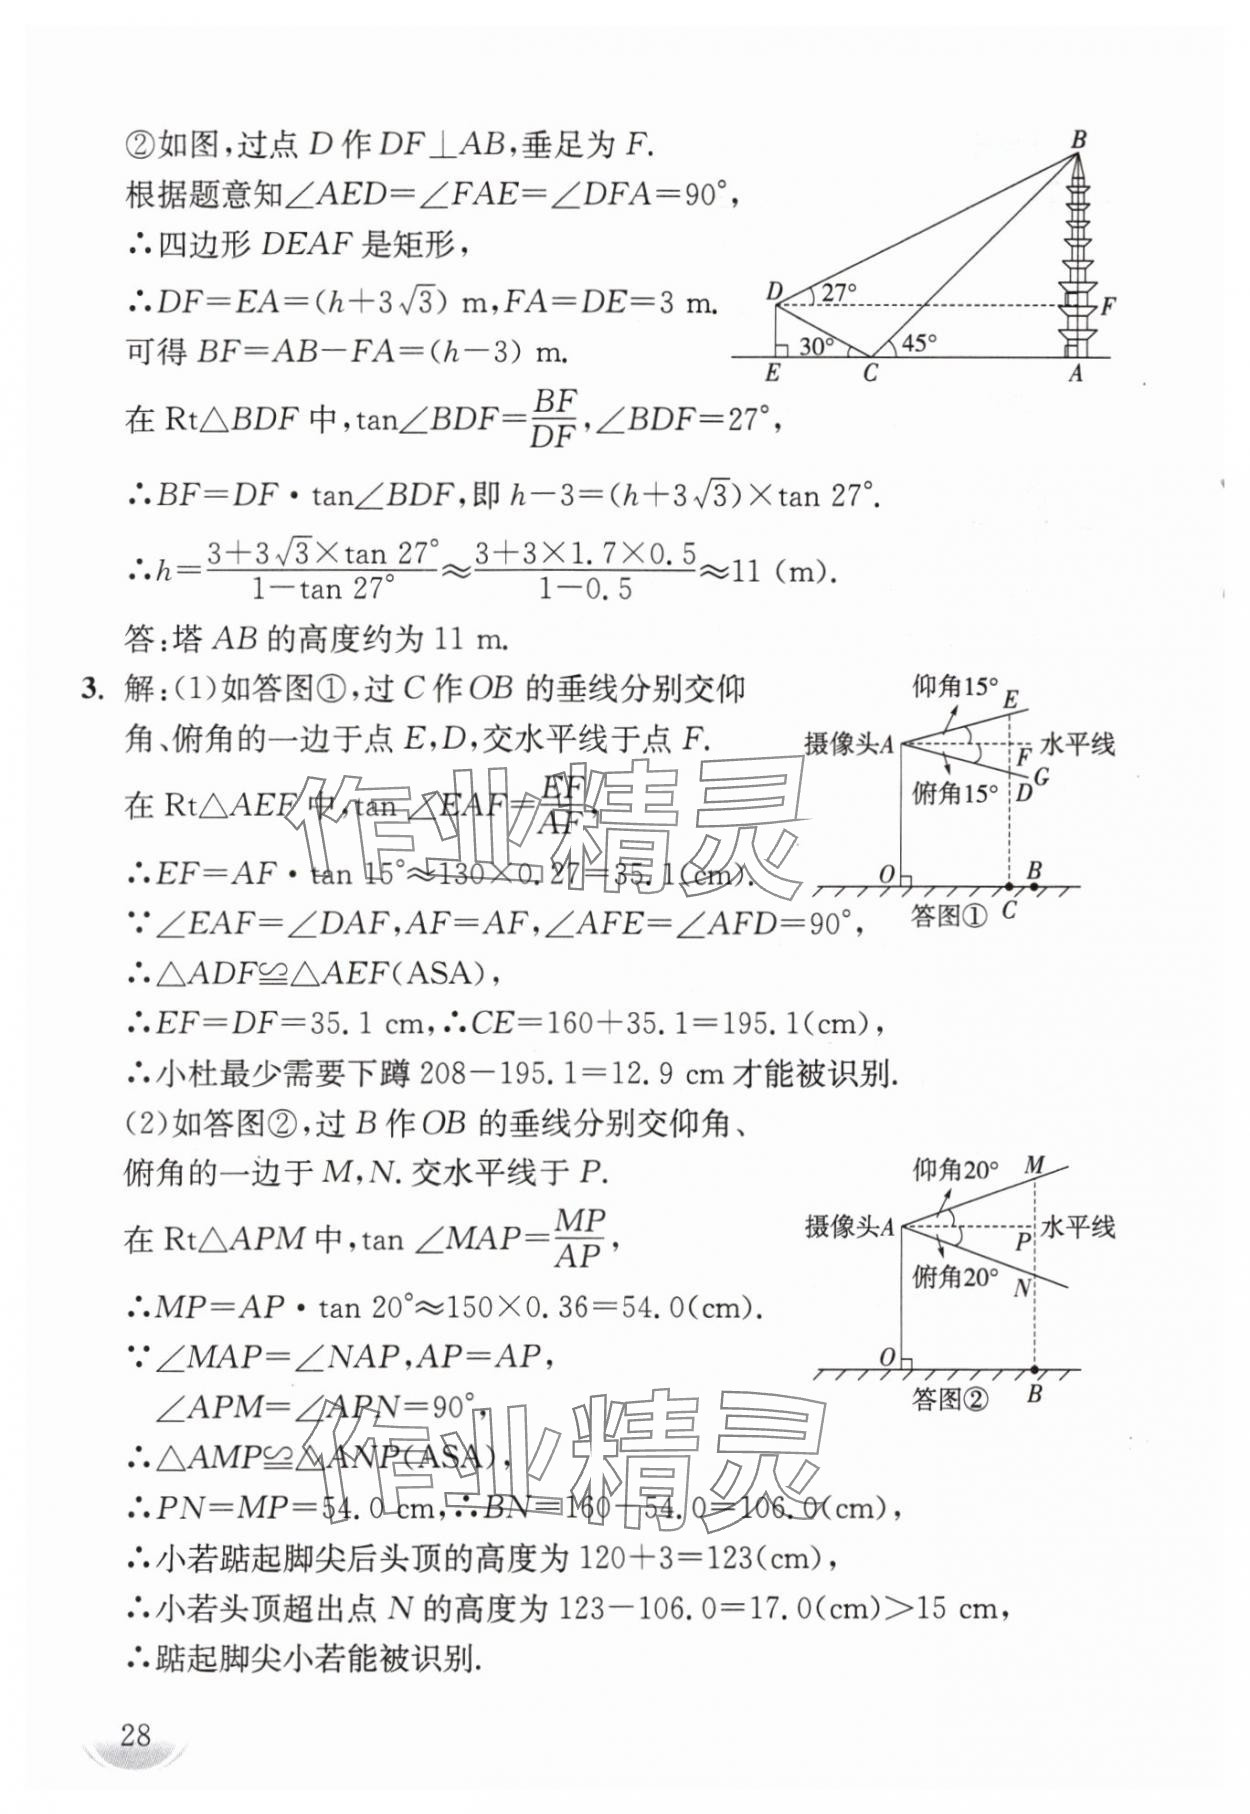 ②如图,过点 D 作 DF⊥AB,垂足为 F.
根据题意知∠AED=∠FAE=∠DFA=90°,
∴四边形 DEAF 是矩形,
∴DF=EA=(h+3√3) m,FA=DE=3 m.
可得 BF=AB−FA=(h−3) m.
在 Rt△BDF 中,tan∠BDF=BF/DF,∠BDF=27°,
∴BF=DF·tan∠BDF,即 h−3=(h+3√3)×tan 27°.
∴h=(3+3√3×tan 27°)/(1−tan 27°)≈(3+3×1.7×0.5)/(1−0.5)≈11 (m).
答:塔 AB 的高度约为 11 m.
B
D
27°
F
30°
45°
E
C
A
3. 解:(1)如答图①,过 C 作 OB 的垂线分别交仰
角、俯角的一边于点 E,D,交水平线于点 F.
在 Rt△AEF 中,tan ∠EAF=EF/AF,
∴EF=AF·tan 15°≈130×0.27=35.1(cm).
∵∠EAF=∠DAF,AF=AF,∠AFE=∠AFD=90°,
∴△ADF≌△AEF(ASA),
∴EF=DF=35.1 cm,∴CE=160+35.1=195.1(cm),
∴小杜最少需要下蹲 208−195.1=12.9 cm 才能被识别.
仰角15° E
摄像头A
F 水平线
G
俯角15° D
O
B
答图① C
(2)如答图②,过 B 作 OB 的垂线分别交仰角、
俯角的一边于 M,N.交水平线于 P.
在 Rt△APM 中,tan ∠MAP=MP/AP,
∴MP=AP·tan 20°≈150×0.36=54.0(cm).
∵∠MAP=∠NAP,AP=AP,
∠APM=∠APN=90°,
∴△AMP≌△ANP(ASA),
∴PN=MP=54.0 cm,∴BN=160−54.0=106.0(cm),
∴小若踮起脚尖后头顶的高度为 120+3=123(cm),
∴小若头顶超出点 N 的高度为 123−106.0=17.0(cm)>15 cm,
∴踮起脚尖小若能被识别.
仰角20° M
摄像头A
P 水平线
俯角20° N
O
答图② B
作业精灵
作业精灵
28